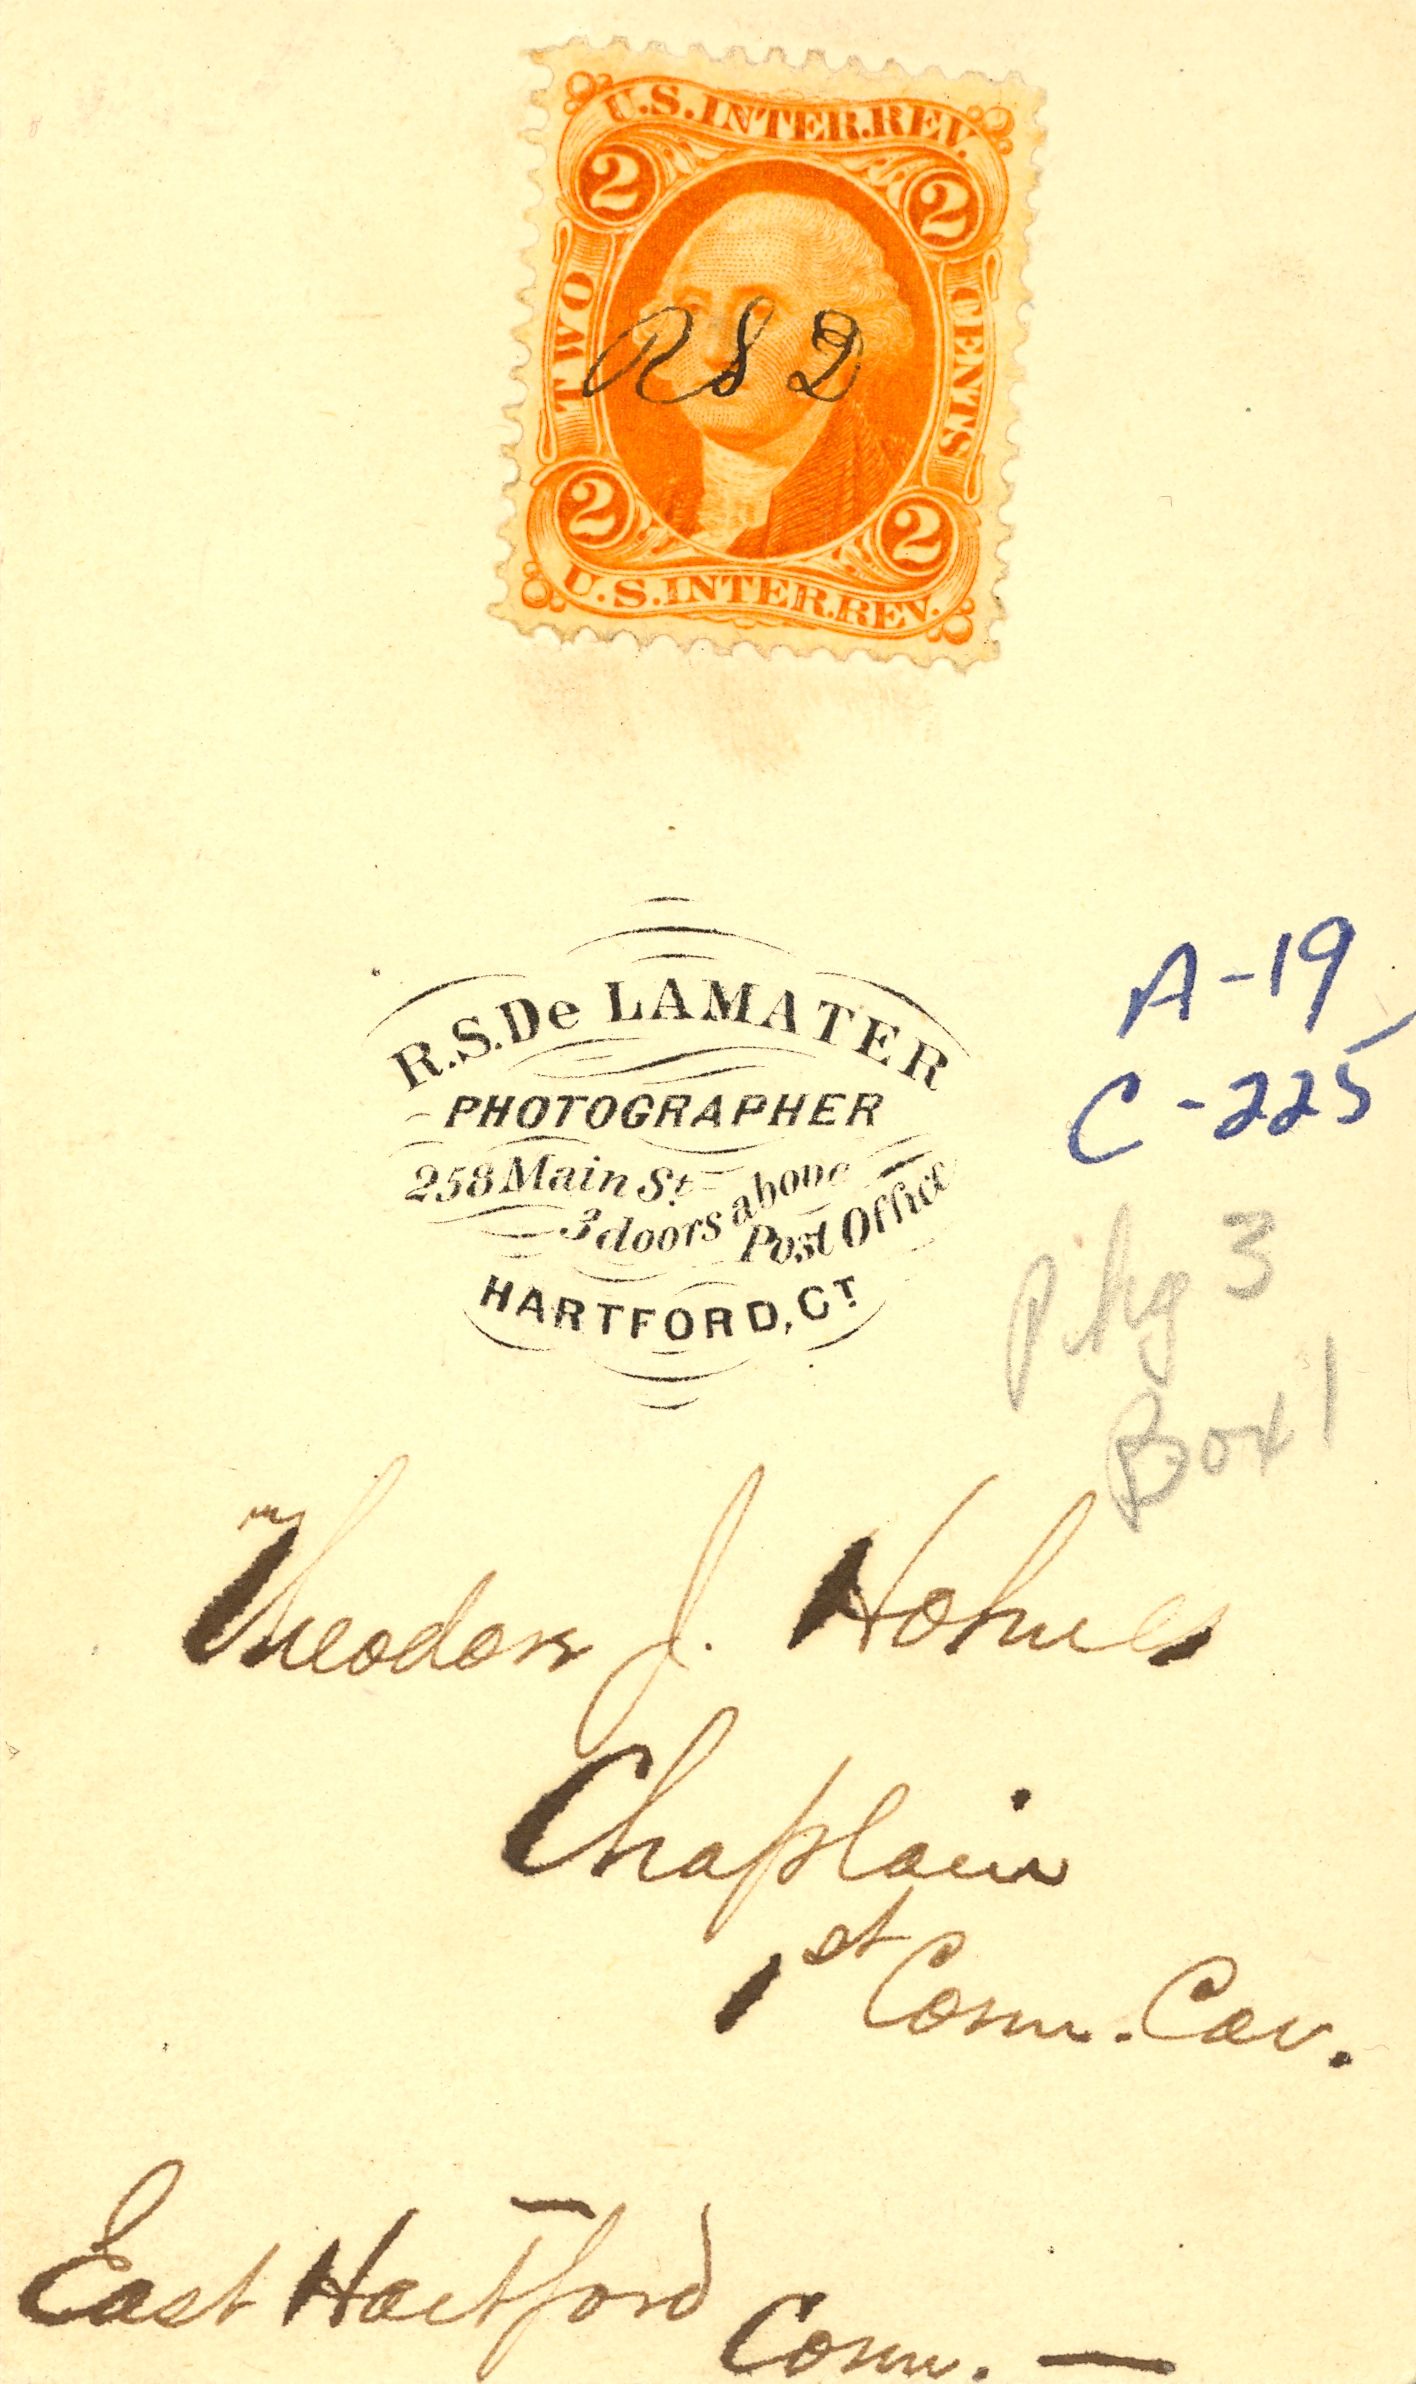 U.S. INTER. REV.
2 2
TWO
CENTS
R S D
2 2
U.S. INTER. REV.
R.S. De LAMATER
PHOTOGRAPHER
258 Main St.
3 doors above
Post Office
HARTFORD, CT.
A-19
C-225
Pkg 3
Box 1
Theodore J. Holmes
Chaplain
1st Conn. Cav.
East Hartford
Conn. —